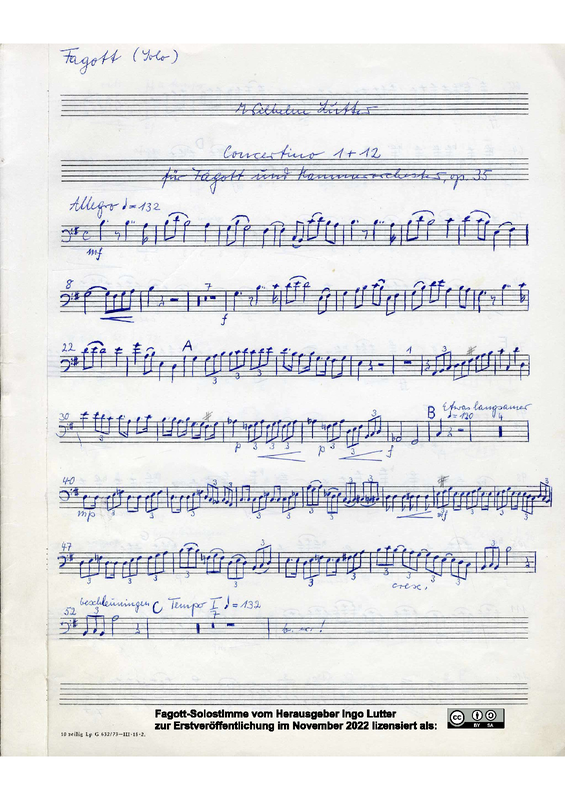 Fagott (Solo)
Wilhelm Lutter
Concertino 1+12
für Fagott und Kammerorchester, op. 35
Allegro ♩=132
mf
8
7
f
22
A
3
3
3
1
3
3
30
3
3
3
3
B Etwas langsamer
♩=120
4
p
p
f
40
mp
3
3
3
3
3
mf
47
3
3
3
3
3
3
3
cresc.
52
beschleunigen C Tempo I ♩=132
3
7
Fagott-Solostimme vom Herausgeber Ingo Lutter
zur Erstveröffentlichung im November 2022 lizensiert als:
cc BY SA